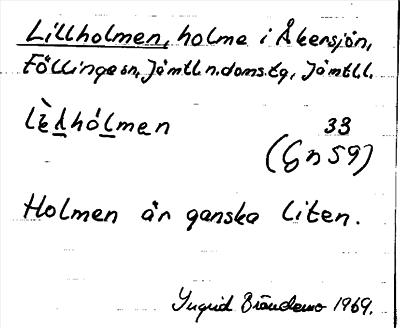 Lillholmen, holme i Åkersjön,
Föllinge sn, Jämtl. n. doms. tg, Jämtl. l.
lèʌhólmen 33
(Gn 59)
Holmen är ganska liten.
Ingrid Brändemo 1969.